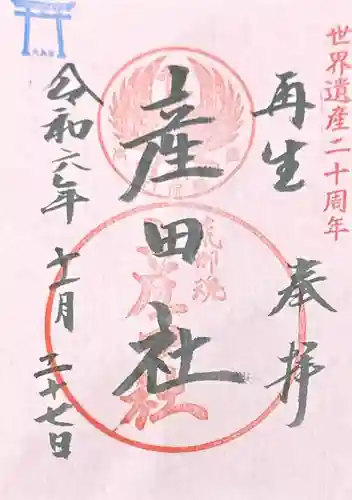 世界遺産二十周年
再生 奉拝
産田社
令和六年 十一月 二十七日
荒御魂
産田社